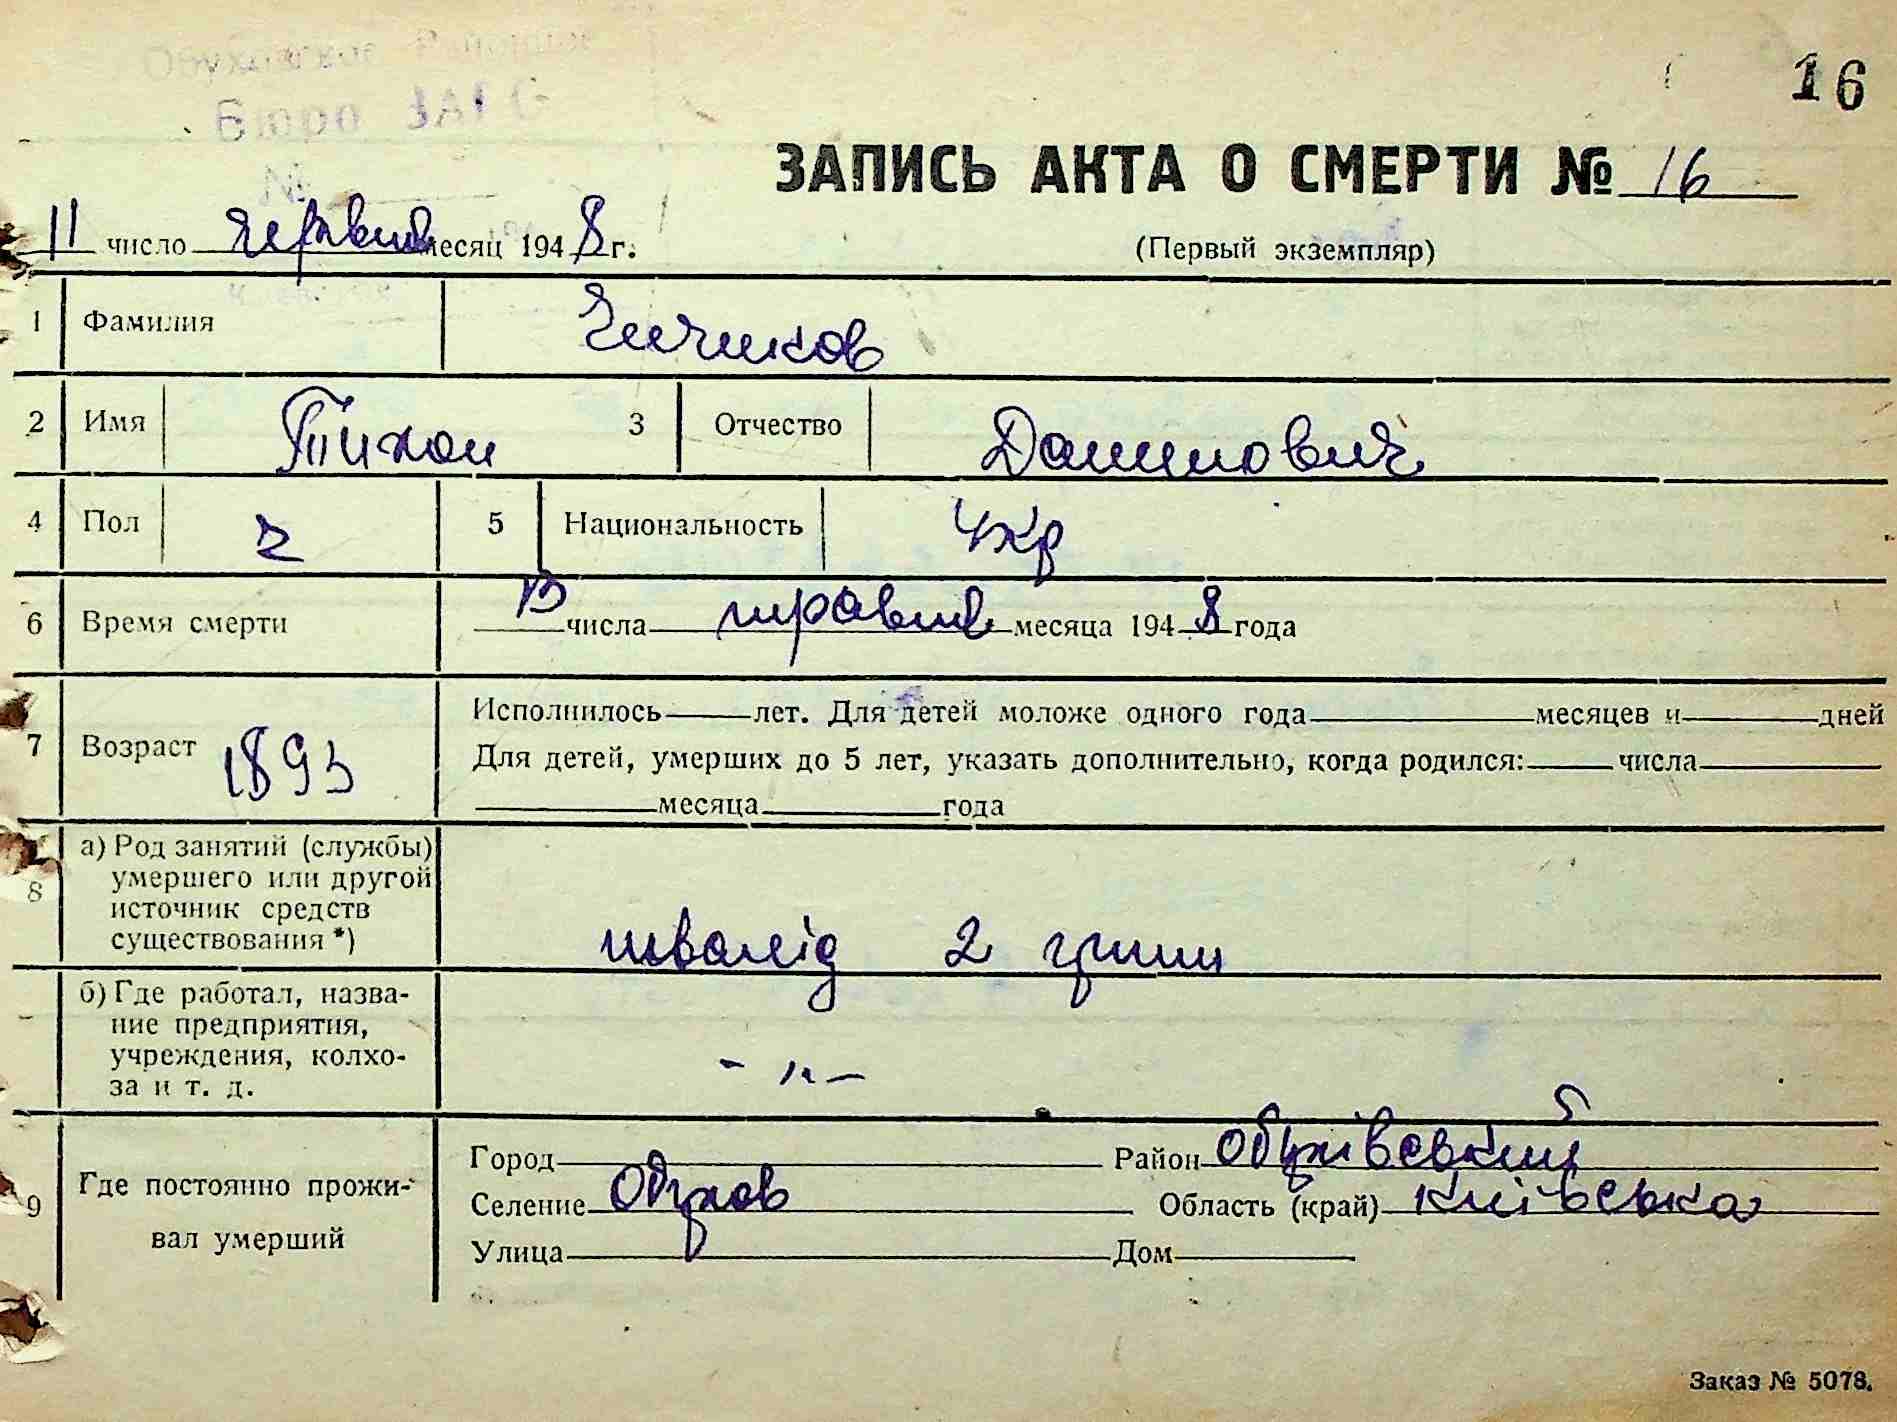 Обуховское Районное
Бюро ЗАГС
№
16
ЗАПИСЬ АКТА О СМЕРТИ № 16
11 число червня месяц 1948 г.
(Первый экземпляр)
1 Фамилия Чичиков
2 Имя Тихон 3 Отчество Данилович
4 Пол ч 5 Национальность Укр
6 Время смерти числа травня месяца 1948 года
7 Возраст 1893 Исполнилось лет. Для детей моложе одного года месяцев и дней
Для детей, умерших до 5 лет, указать дополнительно, когда родился: числа
месяца года
8 а) Род занятий (службы)
умершего или другой
источник средств
существования *) інвалід 2 групи
б) Где работал, назва-
ние предприятия,
учреждения, колхо-
за и т. д. - " -
9 Где постоянно прожи-
вал умерший
Город Район Обухівський
Селение Обухов Область (край) Київська
Улица Дом
Заказ № 5078.